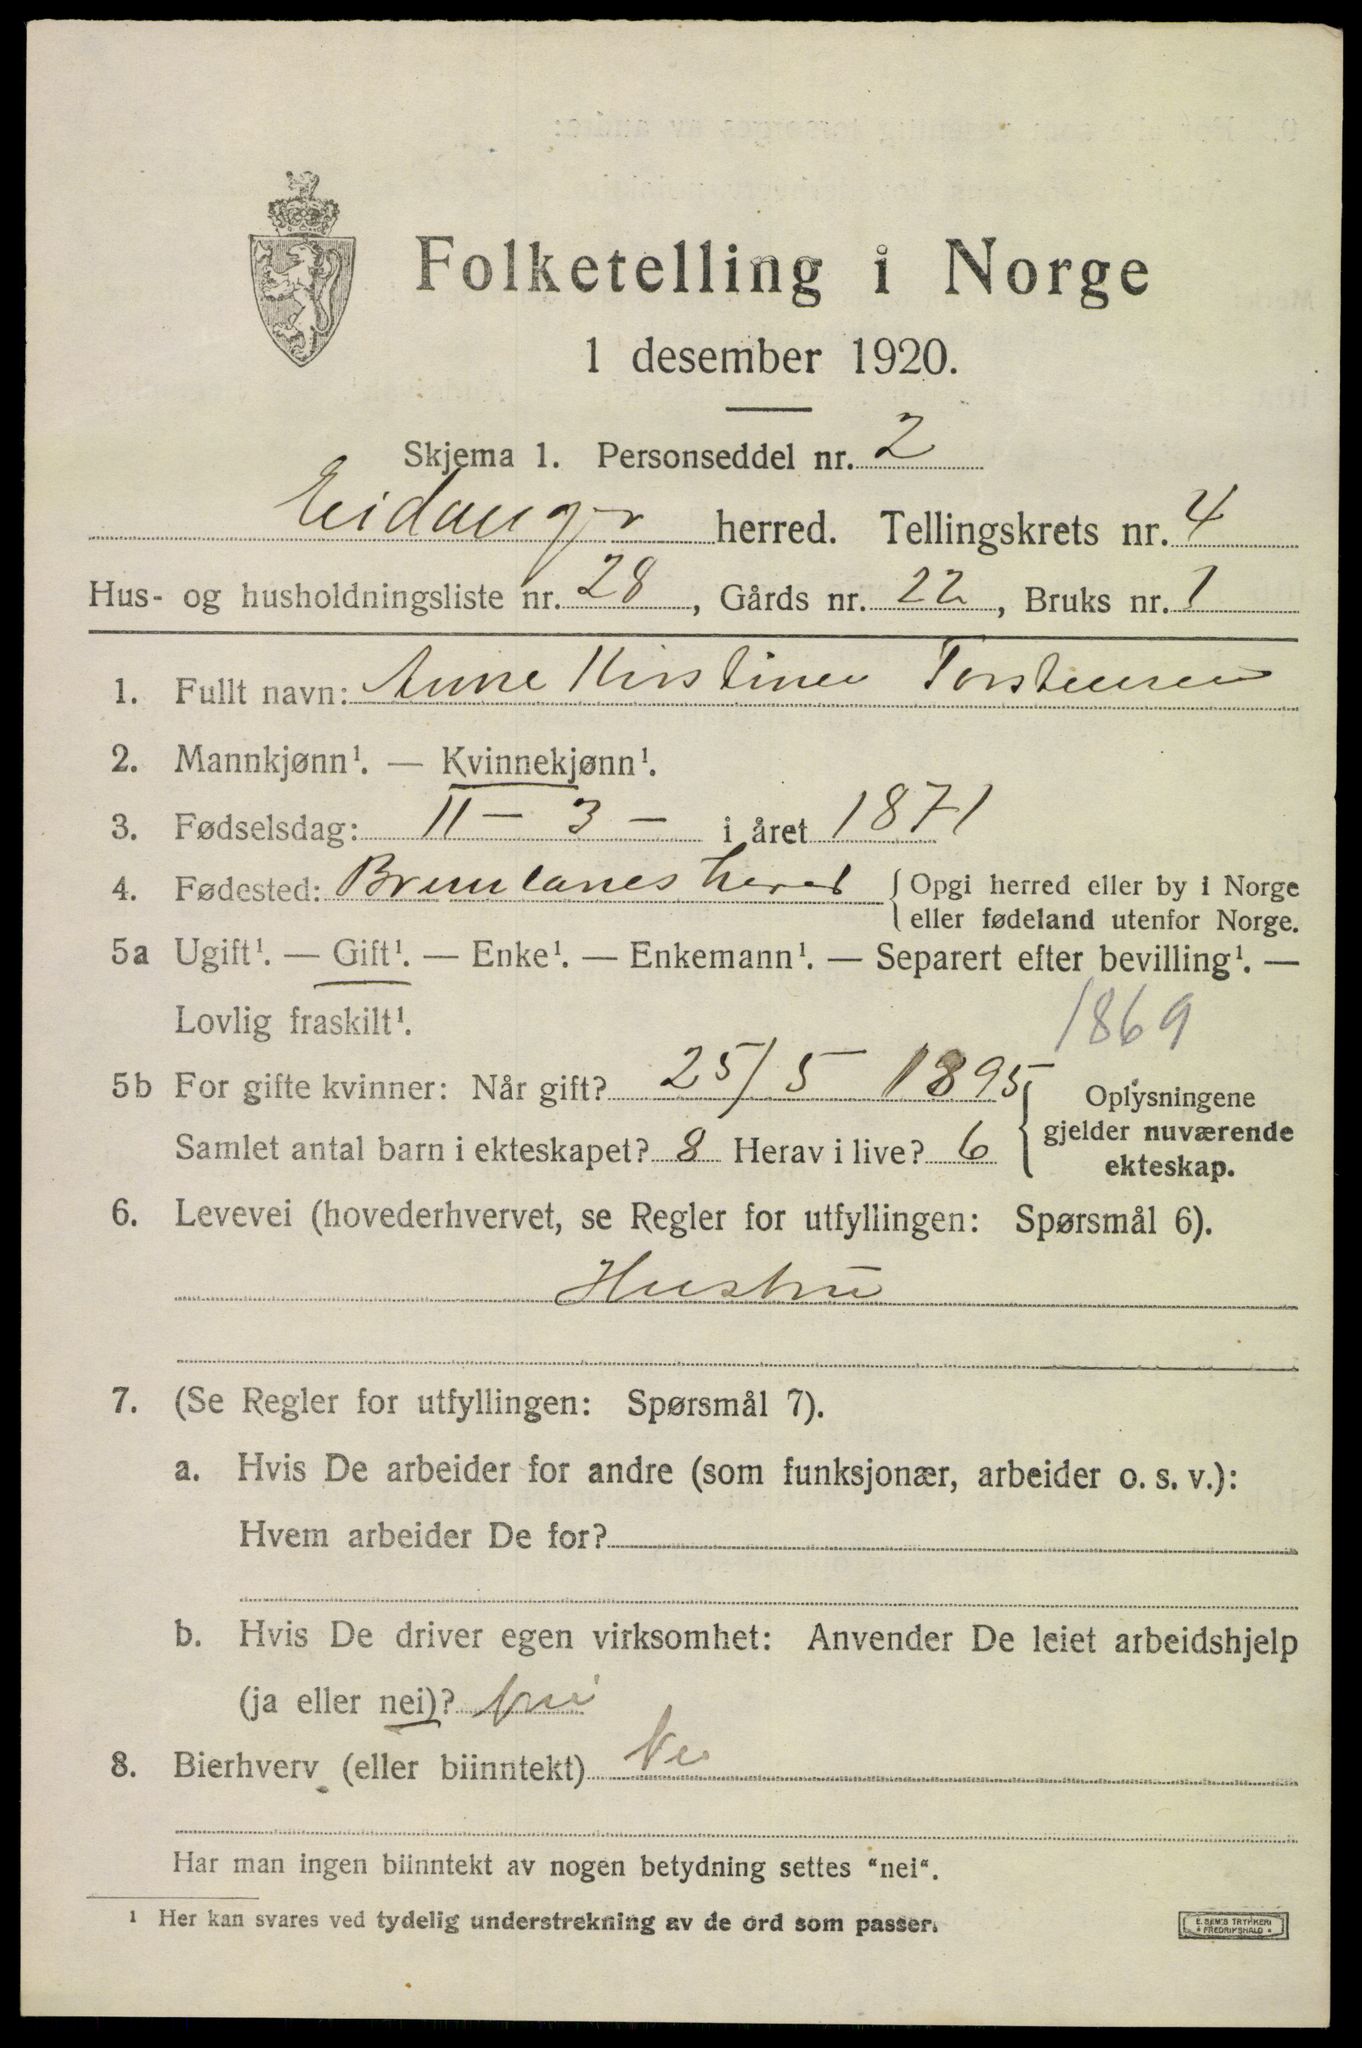 Folketelling i Norge
1 desember 1920.
Skjema 1. Personseddel nr. 2
Eidanger herred. Tellingskrets nr. 4
Hus- og husholdningsliste nr. 28, Gårds nr. 22, Bruks nr. 1
1. Fullt navn: Anne Kirstine Torstensen
2. Mannkjønn¹. — Kvinnekjønn¹.
3. Fødselsdag: 11 - 3 - i året 1871
4. Fødested: Brunlanes herred {Opgi herred eller by i Norge
eller fødeland utenfor Norge.
5a Ugift¹. — Gift¹. — Enke¹. — Enkemann¹. — Separert efter bevilling¹. —
Lovlig fraskilt¹.
1869
5b For gifte kvinner: Når gift? 25/5 1895
Samlet antal barn i ekteskapet? 8 Herav i live? 6
{Oplysningene
gjelder nuværende
ekteskap.
6. Levevei (hovederhvervet, se Regler for utfyllingen: Spørsmål 6).
Hustru
7. (Se Regler for utfyllingen: Spørsmål 7).
a. Hvis De arbeider for andre (som funksjonær, arbeider o. s. v.):
Hvem arbeider De for?
b. Hvis De driver egen virksomhet: Anvender De leiet arbeidshjelp
(ja eller nei)? nei
8. Bierhverv (eller biinntekt) Nei
Har man ingen biinntekt av nogen betydning settes "nei".
¹ Her kan svares ved tydelig understrekning av de ord som passer.
E. SEM'S TRYKKERI
FREDRIKSHALD